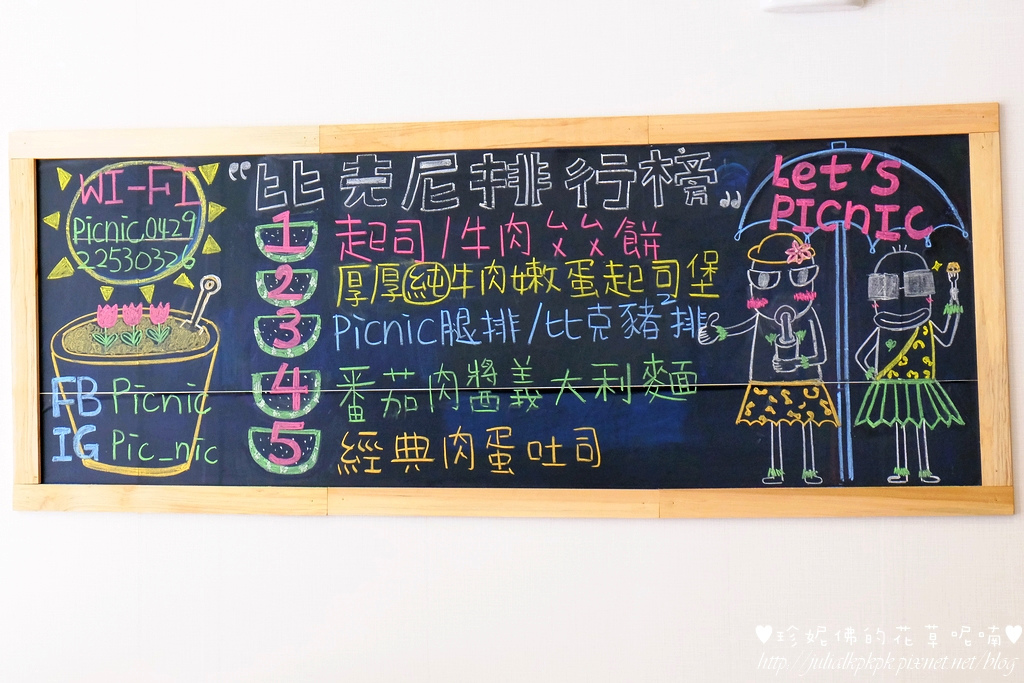 WI-FI
Picnic.0429
22530326
"比克尼排行榜"
1 起司/牛肉ㄆㄆ餅
2 厚厚純牛肉嫩蛋起司堡
3 Picnic腿排/比克豬排
4 番茄肉醬義大利麵
5 經典肉蛋吐司
FB Picnic
IG Pic_nic
Let's
PICNIC
♥珍妮佛的花草呢喃♥
http://julialkpkpk.pixnet.net/blog